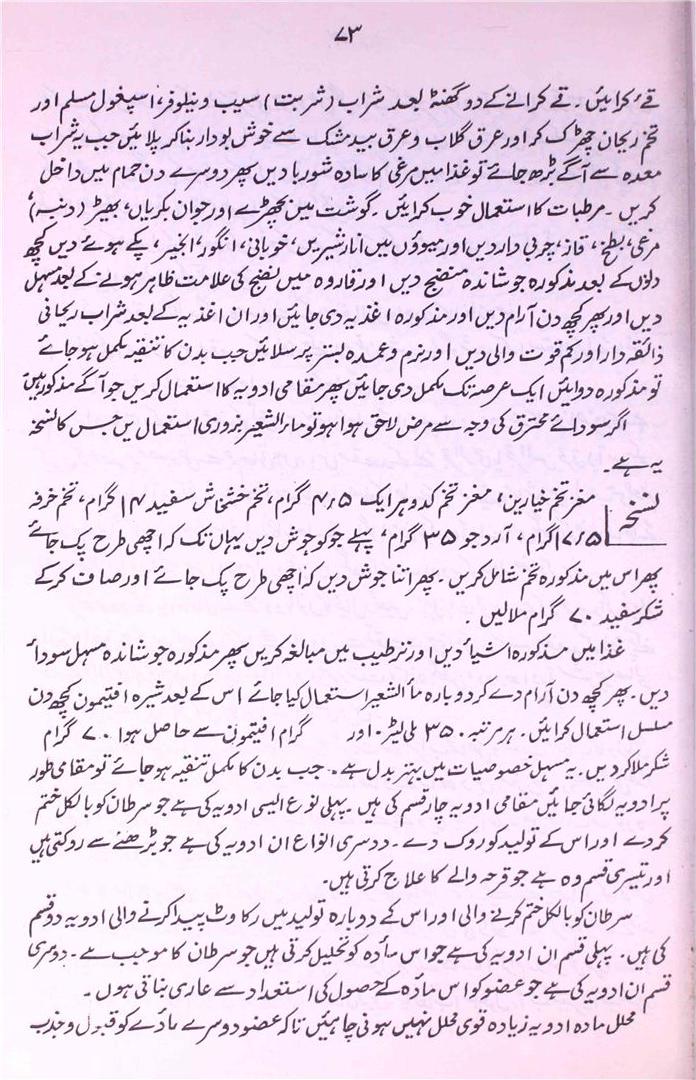 ۷۳
قے کرائیں۔ قے کرانے کے دو گھنٹہ بعد شراب (شربت) سیب و نیلوفر، اسپغول مسلم اور
تخم ریحان چھڑک کر اور عرق گلاب و عرق بید مشک سے خوش بودار بناکر پلائیں جب یہ شراب
معدہ سے آگے بڑھ جائے تو غذا میں مرغی کا سادہ شوربا دیں پھر دوسرے دن حمام میں داخل
کریں۔ مرطبات کا استعمال خوب کرائیں۔ گوشت میں بچھڑے اور جوان بکریاں، بھیڑ (دنبہ)،
مرغی، بطخ، قاز، چربی دار دیں اور میوؤں میں انار شیریں، خوبانی، انگور، انجیر، پکے ہوئے دیں کچھ
دلوں کے بعد مذکورہ جوشاندہ منضج دیں اور قارورہ میں نضج کی علامت ظاہر ہونے کے بعد مسہل
دیں اور پھر کچھ دن آرام دیں اور مذکورہ اغذیہ دی جائیں اور ان اغذیہ کے بعد شراب ریحانی
ذائقہ دار اور کم قوت والی دیں اور نرم و عمدہ بستر پر سلائیں جب بدن کا تنقیہ مکمل ہوجائے
تو مذکورہ دوائیں ایک عرصہ تک مکمل دی جائیں پھر مقامی ادویہ کا استعمال کریں جو آگے مذکور ہیں
اگر سودائے محترق کی وجہ سے مرض لاحق ہوا ہو تو ماء الشعیر بزوری استعمال یں جس کا نسخہ
یہ ہے۔
نسخہ مغز تخم خیارین، مغز تخم کدو ہر ایک ۴٫۵ گرام، تخم خشخاش سفید ۱۴ گرام، تخم خرفہ
۱۷٫۵ گرام، آرد جو ۳۵ گرام، پہلے جو کو جوش دیں یہاں تک کہ اچھی طرح پک جائے
پھر اس میں مذکورہ تخم شامل کریں۔ پھر اتنا جوش دیں کہ اچھی طرح پک جائے اور صاف کرکے
شکر سفید ۷۰ گرام ملالیں۔
غذا میں مذکورہ اشیاء دیں اور ترطیب میں مبالغہ کریں پھر مذکورہ جوشاندہ مسہل سوداء
دیں۔ پھر کچھ دن آرام دے کر دوبارہ ماء الشعیر استعمال کیا جائے اس کے بعد شیرہ افتیمون کچھ دن
مسلسل استعمال کرائیں۔ ہر مرتبہ ۳۵۰ ملی لیٹر اور گرام افتیمون سے حاصل ہوا ۷۰ گرام
شکر ملا کر دیں۔ یہ مسہل خصوصیات میں بہتر بدل ہے۔ جب بدن کا مکمل تنقیہ ہو جائے تو مقامی طور
پر ادویہ لگائی جائیں مقامی ادویہ چار قسم کی ہیں۔ پہلی نوع ایسی ادویہ کی ہے جو سرطان کو بالکل ختم
کردے اور اس کے تولید کو روک دے۔ دوسری انواع ان ادویہ کی ہے جو بڑھنے سے روکتی ہیں
اور تیسری قسم وہ ہے جو قرحہ والے کا علاج کرتی ہیں۔
سرطان کو بالکل ختم کرنے والی اور اس کے دوبارہ تولید میں رکاوٹ پیدا کرنے والی ادویہ دو قسم
کی ہیں۔ پہلی قسم ان ادویہ کی ہے جو اس مادہ کو تحلیل کرتی ہیں جو سرطان کا موجب ہے۔ دوسری
قسم ان ادویہ کی ہے جو عضو کو اس مادہ کے حصول کی استعداد سے عاری بناتی ہوں۔
محلل مادہ ادویہ زیادہ قوی محلل نہیں ہونی چاہئیں تاکہ عضو دوسرے مادے کو قبول و جذب